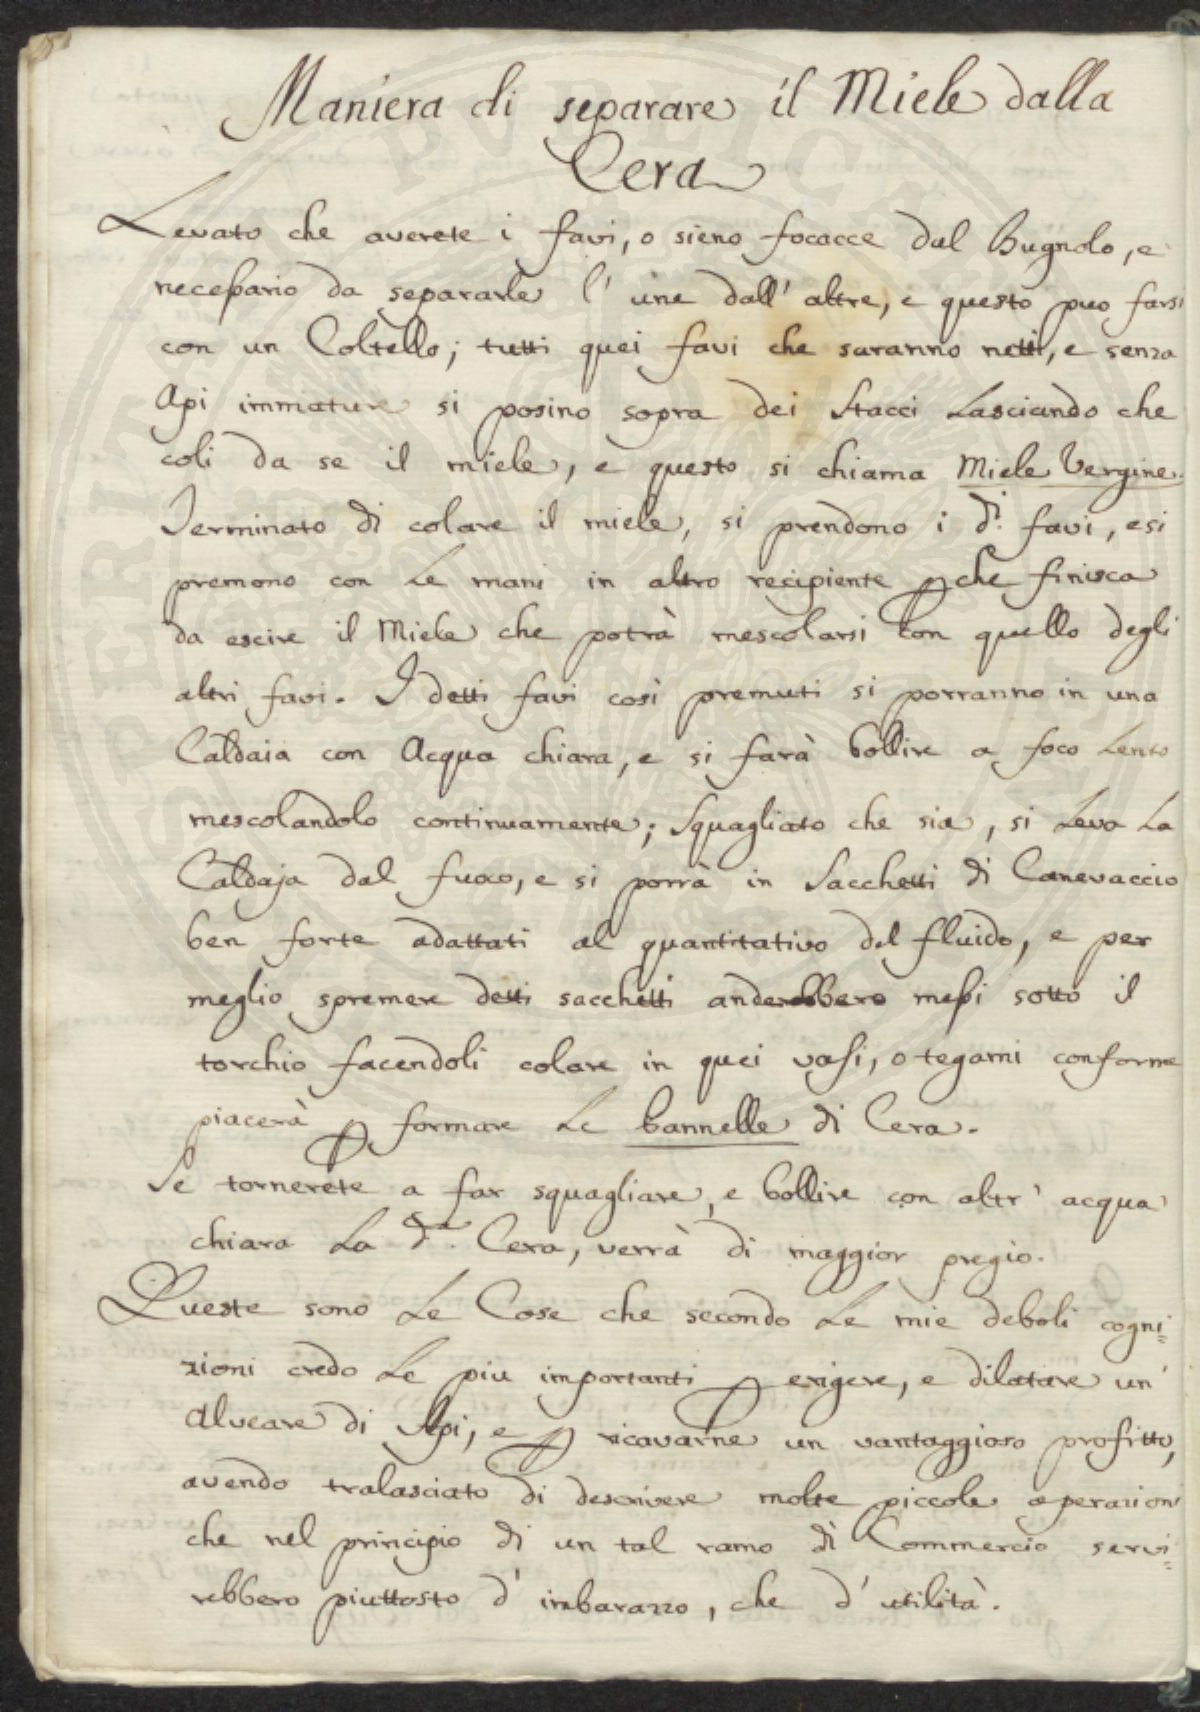 Maniera di separare il Miele dalla
Cera
Levato che averete i favi, o sieno focacce dal Bugnolo, e
necessario da separarle l' une dall' altre, e questo puo farsi
con un Coltello; tutti quei favi che saranno netti, e senza
Api immature si posino sopra dei Stacci Lasciando che
coli da se il miele, e questo si chiama Miele Vergine.
Terminato di colare il miele, si prendono i d.i favi, e si
premono con Le mani in altro recipiente ꝑche finisca
da escire il Miele che potrà mescolarsi con quello degli
altri favi. I detti favi così premuti si porranno in una
Caldaia con Acqua chiara, e si farà bollire a foco Lento
mescolandolo continuamente; Squagliato che sia, si Leva La
Caldaja dal fuoco, e si porrà in Sacchetti di Canevaccio
ben forte adattati al quantitativo del fluido, e per
meglio spremere detti sacchetti anderebbero messi sotto il
torchio facendoli colare in quei vasi, o tegami conforme
piacerà ꝑ formare Le bannelle di Cera.
Se tornerete a far squagliare, e bollire con altr' acqua
chiara La d.a Cera, verrà di maggior pregio.
Queste sono Le Cose che secondo Le mie deboli cogni=
zioni credo Le piu importanti ꝑ erigere, e dilatare un'
Alveare di Api, e ꝑ ricavarne un vantaggioso profitto,
avendo tralasciato di descrivere molte piccole operazioni
che nel principio di un tal ramo di Commercio servi=
rebbero piuttosto d' imbarazzo, che d' utilità.